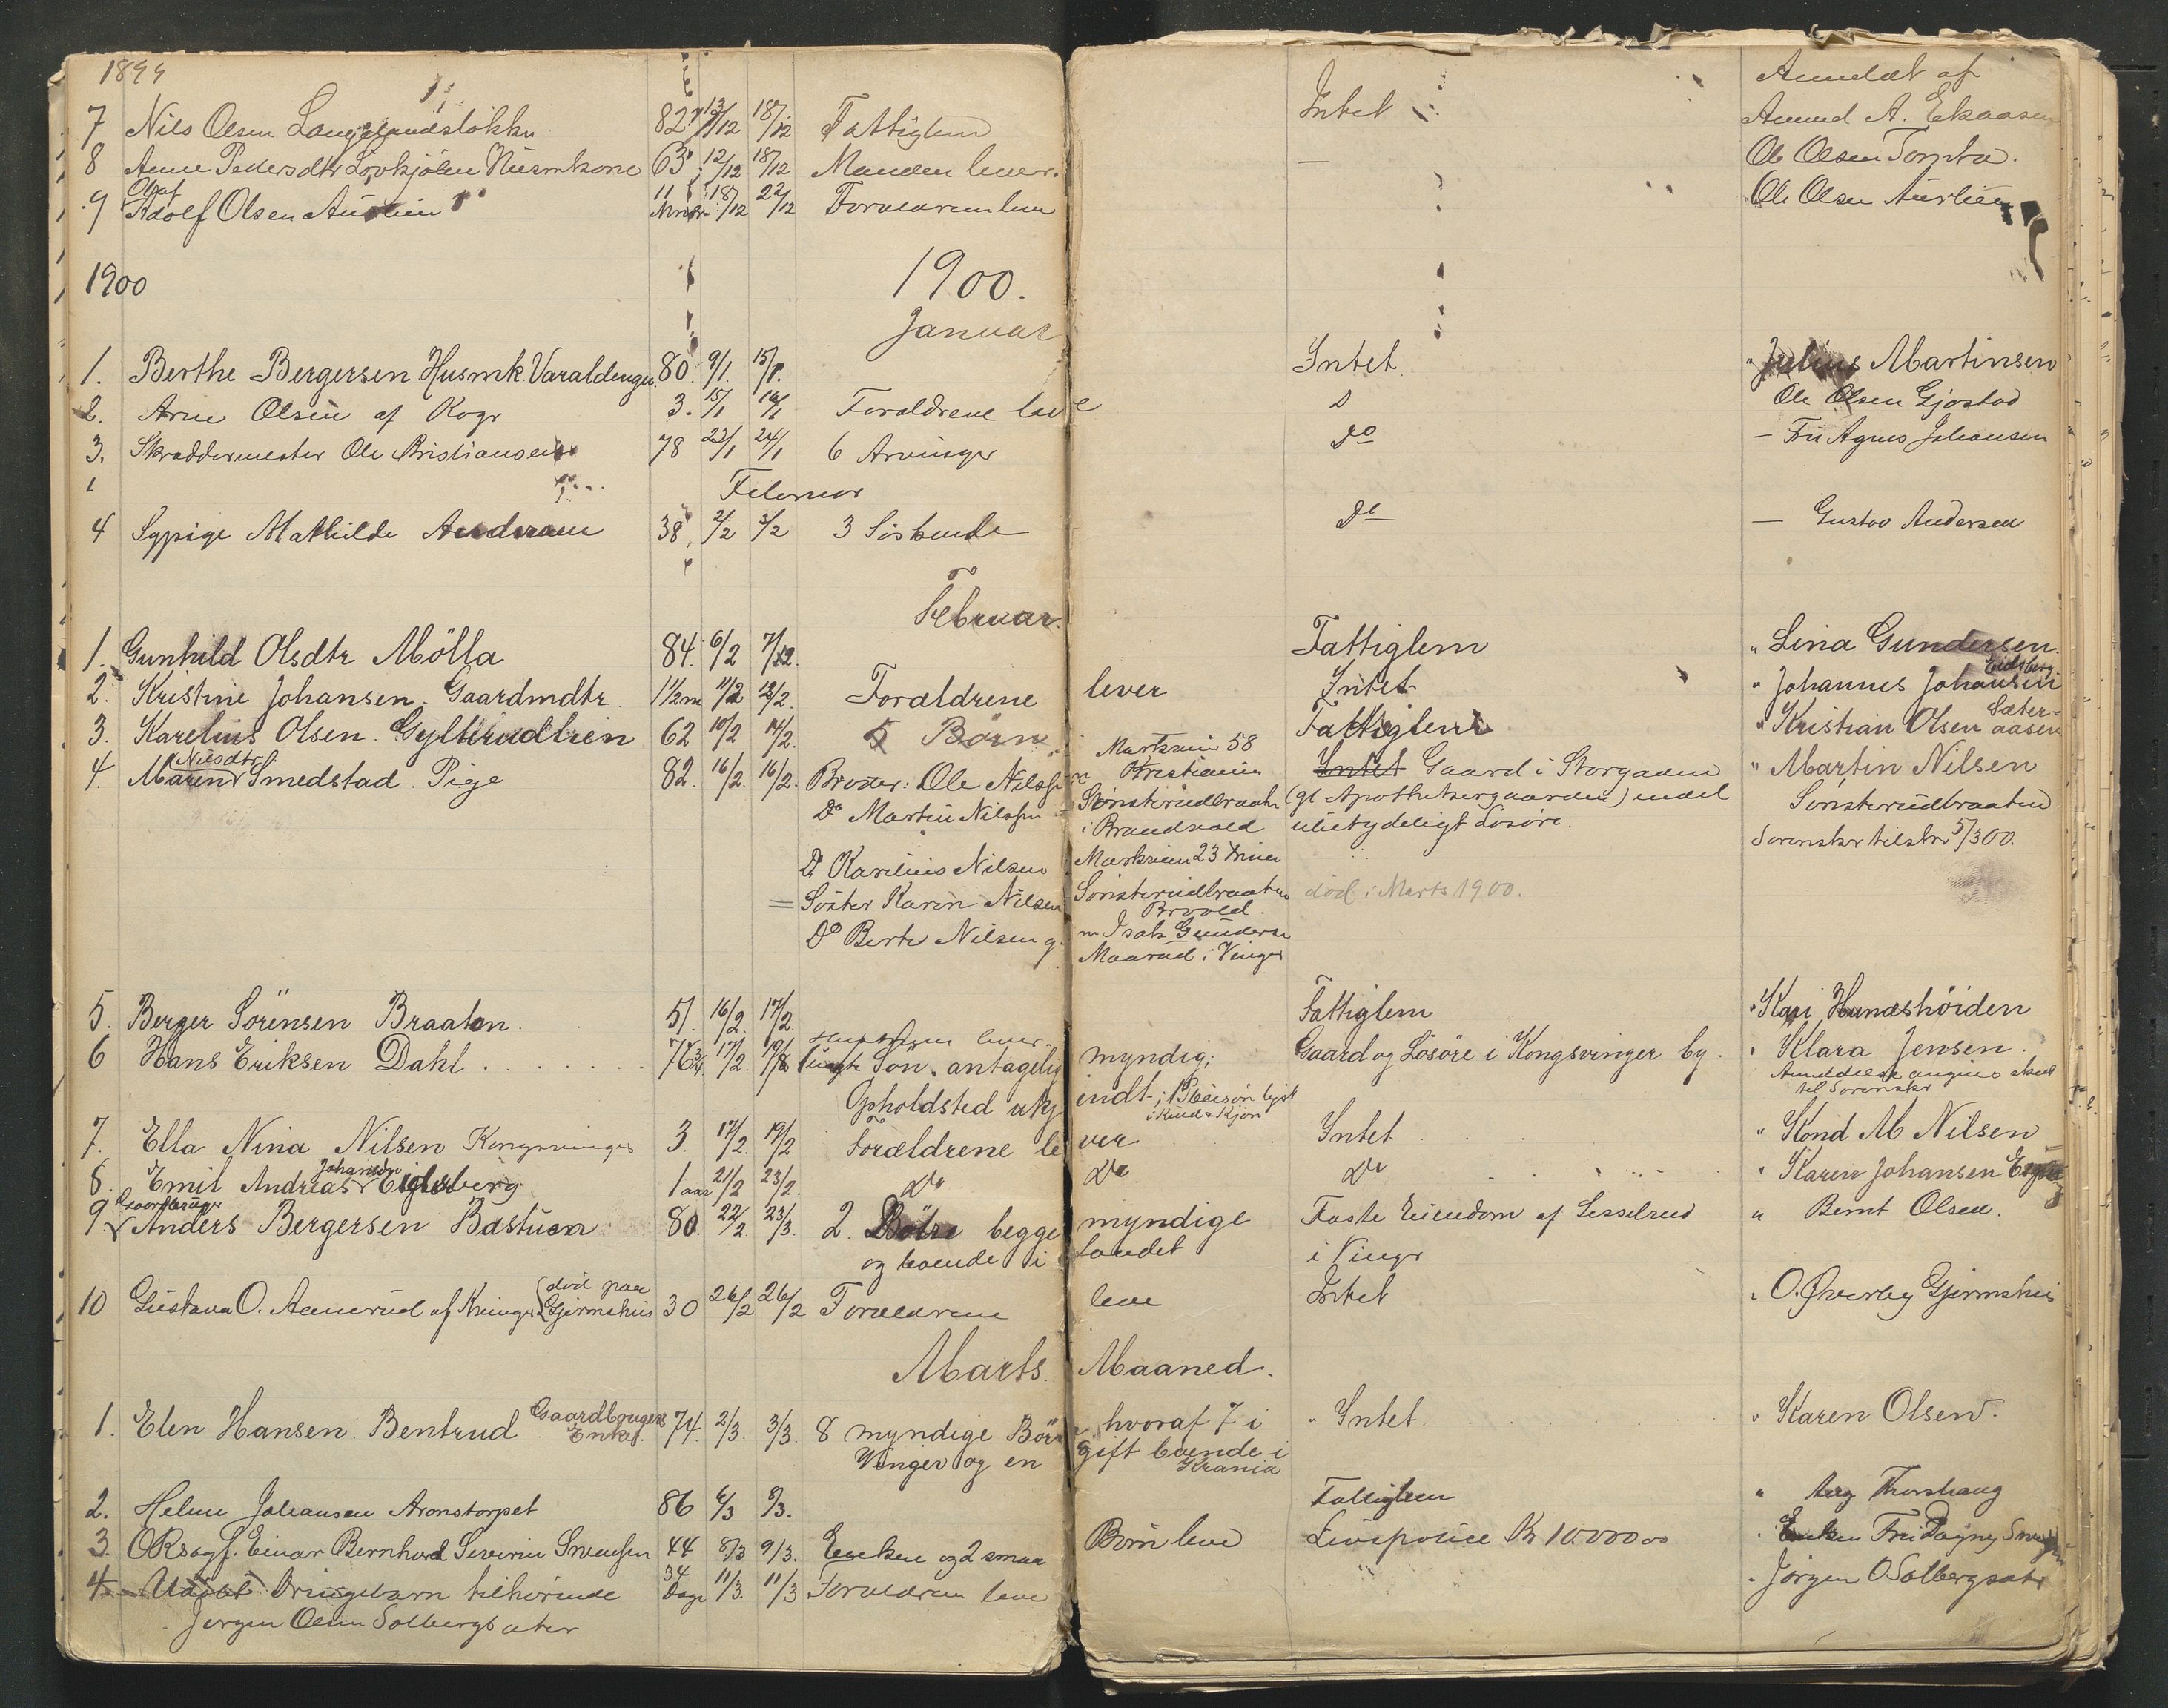 1899 Anmeldt af
7 Nils Olsen Langelandsløkken 82 13/12 18/12 Fattiglem Intet Amund A. Ekaasen
8 Anne Pedersdtr Løvhjølen Husmkone 63 12/12 18/12 Manden lever. — Ole Olsen Tomta.
9 Olaf Adolf Olsen Aurlien 11 Mndr 18/12 22/12 Forældrene leve Ole Olsen Aurlien
1900 1900.
Januar
1. Berthe Bergersen Husmk. Varaldengen 80. 9/1. 15/1. Intet. " Julius Martinsen
2. Arne Olsen af Kogr 3. 15/1 16/1 Forældrene leve D Ole Olsen Gjøstad
3. Skræddermester Ole Kristiansen 78 22/1 24/1 6 Arvinger Do — Fru Agnes Johansen
Februar
4 Sypige Mathilde Andersen 38 2/2 3/2 3 Søskende Do — Gustav Andersen
Februar.
1. Gunhild Olsdtr Mölla 84. 6/2 7/2. Fattiglem " Lina Gundersen.
2. Kristine Johansen. Gaardmdtr. 1 1/2 m 11/2 12/2. Forældrene lever Intet " Johannes Johansen Eidsberg
3. Karelius Olsen. Gyltirudtrien 62 10/2 14/2. 5 Børn. Fattiglem " Kristian Olsen Sæteraasen
4. Maren Nilsdtr Smedstad. Pige 82. 16/2. 16/2. Broder: Ole Nilsen Martrein 58 Kristiania Intet Gaard i Storgaden " Martin Nilsen
Do Martin Nilssen Sönsterudbraaten i Brandvold (gl Apothekergaarden) endel ubetydeligt Løsøre. Sönsterudbraaten
Sorensker tilskr 5/3 00.
Do Karelius Nilsen Markveien 23 Kr.nia
= Søster Karen Nilsen Sönsterudbraaten Brvold. död i Marts 1900.
Do Berte Nilsen g. m Isak Gundersen
Maarud i Vinger
5. Berger Sörensen Braaten. 51. 16/2. 17/2. Fattiglem " Kari Hundshöiden
6 Hans Eriksen Dahl 76 3/4. 17/2. 19/2 Søn, antagelig myndig; Gaard og Lösöre i Kongsvinger by. " Klara Jensen.
Opholdsted ukjendt
til Sorenskr
7. Ella Nina Nilsen Kongsvinger 3. 17/2. 19/2. Forældrene lever Intet " Kond M Nilsen
8. Emil Andreas Johansen Eidsberg 1 aar 21/2 23/2. Do Do Do " Karen Johansen
9. Anders Bergersen Bastuen 80. 22/2. 23/3. 2. Døtre begge myndige Faste Eiendom af Lisselrud " Bernt Olsen.
og boende i Landet i Vinger
10 Gustava O. Aamerud af Kvinger (död paa Gjermshus 30 26/2 26/2 Forældrene leve Intet " O. Øverby Gjermshus
Marts. Maaned.
1. Elen Hansen. Bentrud Gaardbrugers Enke. 74. 2/3. 3/3. 8 myndige Börn, hvoraf 7 i " Intet. " Karen Olsen.
Vinger og en gift boende i Krania
2. Helene Johansen Aronstorpet 86 6/3 8/3. Fattiglem " Aug Thorshaug
3. ORsagf. Einar Bernhard Severin Svensen 44 8/3 9/3. Enken og 2 smaa Børn leve Livspolice Kr 10.000 00 " Enken Fru Dagny Svensen
4 Udöbt Drengebarn tilhørende 34 Dage 11/3. 11/3 Forældrene leve " Jørgen O Solbergsæter
Jørgen Olsen Solbergsæter